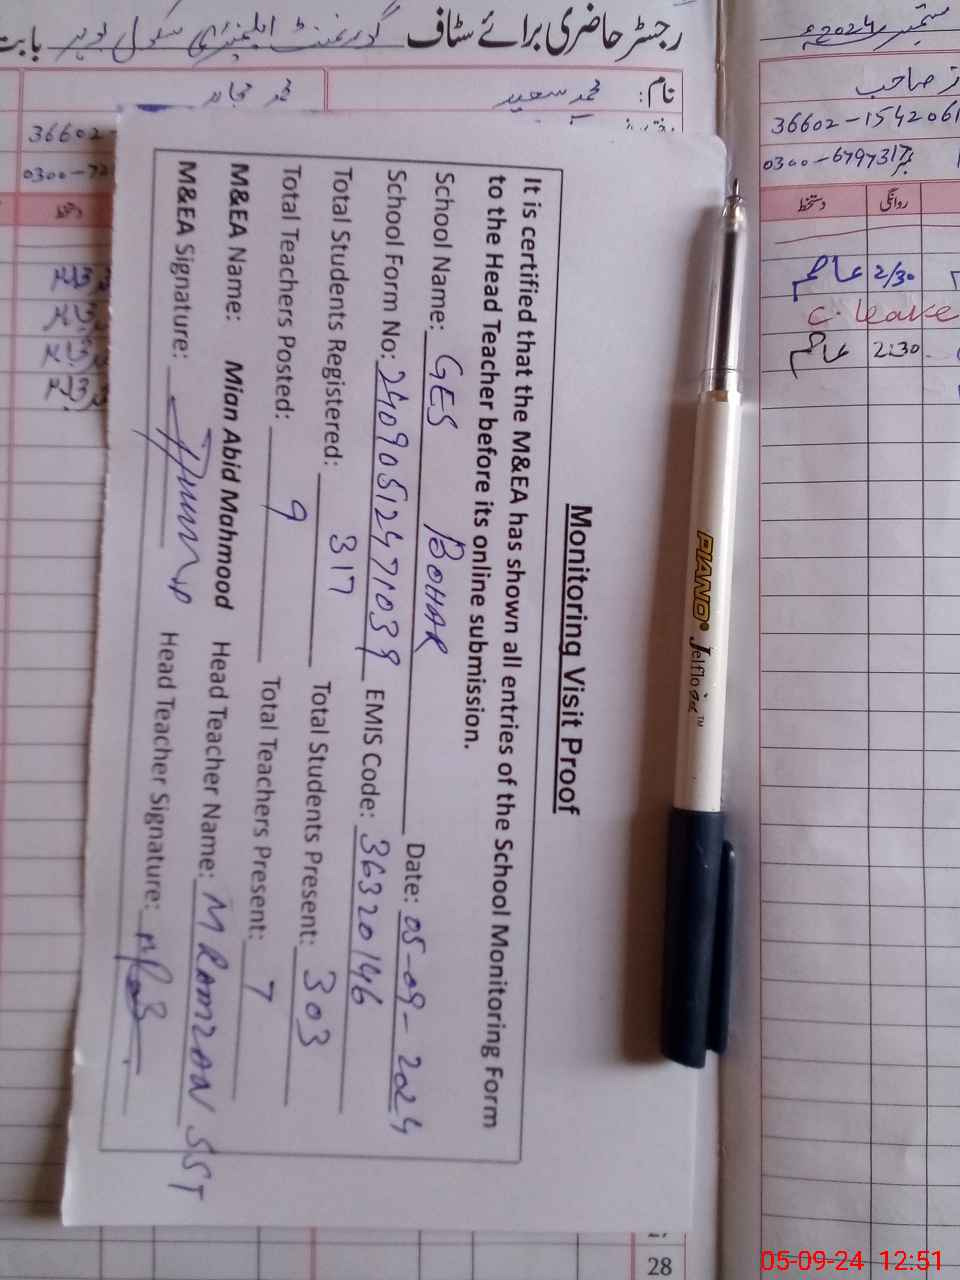 رجسٹر حاضری برائے سٹاف گورنمنٹ ایلیمنٹری سکول بوہر بابت
ستمبر 2024ء
نام: محمد سعید
صاحب
36602-
36602-1542061
0300-72
0300-6797317
دستخط
روانگی
دستخط
2/30
C. leave
2:30
Monitoring Visit Proof
It is certified that the M&EA has shown all entries of the School Monitoring Form
to the Head Teacher before its online submission.
School Name: GES BOHAR Date: 05-09-2024
School Form No: 24090512471039 EMIS Code: 36320146
Total Students Registered: 317 Total Students Present: 303
Total Teachers Posted: 9 Total Teachers Present: 7
M&EA Name: Mian Abid Mahmood Head Teacher Name: M RAMZAN SST
M&EA Signature: Head Teacher Signature:
PIANO Jelflo
28
05-09-24 12:51